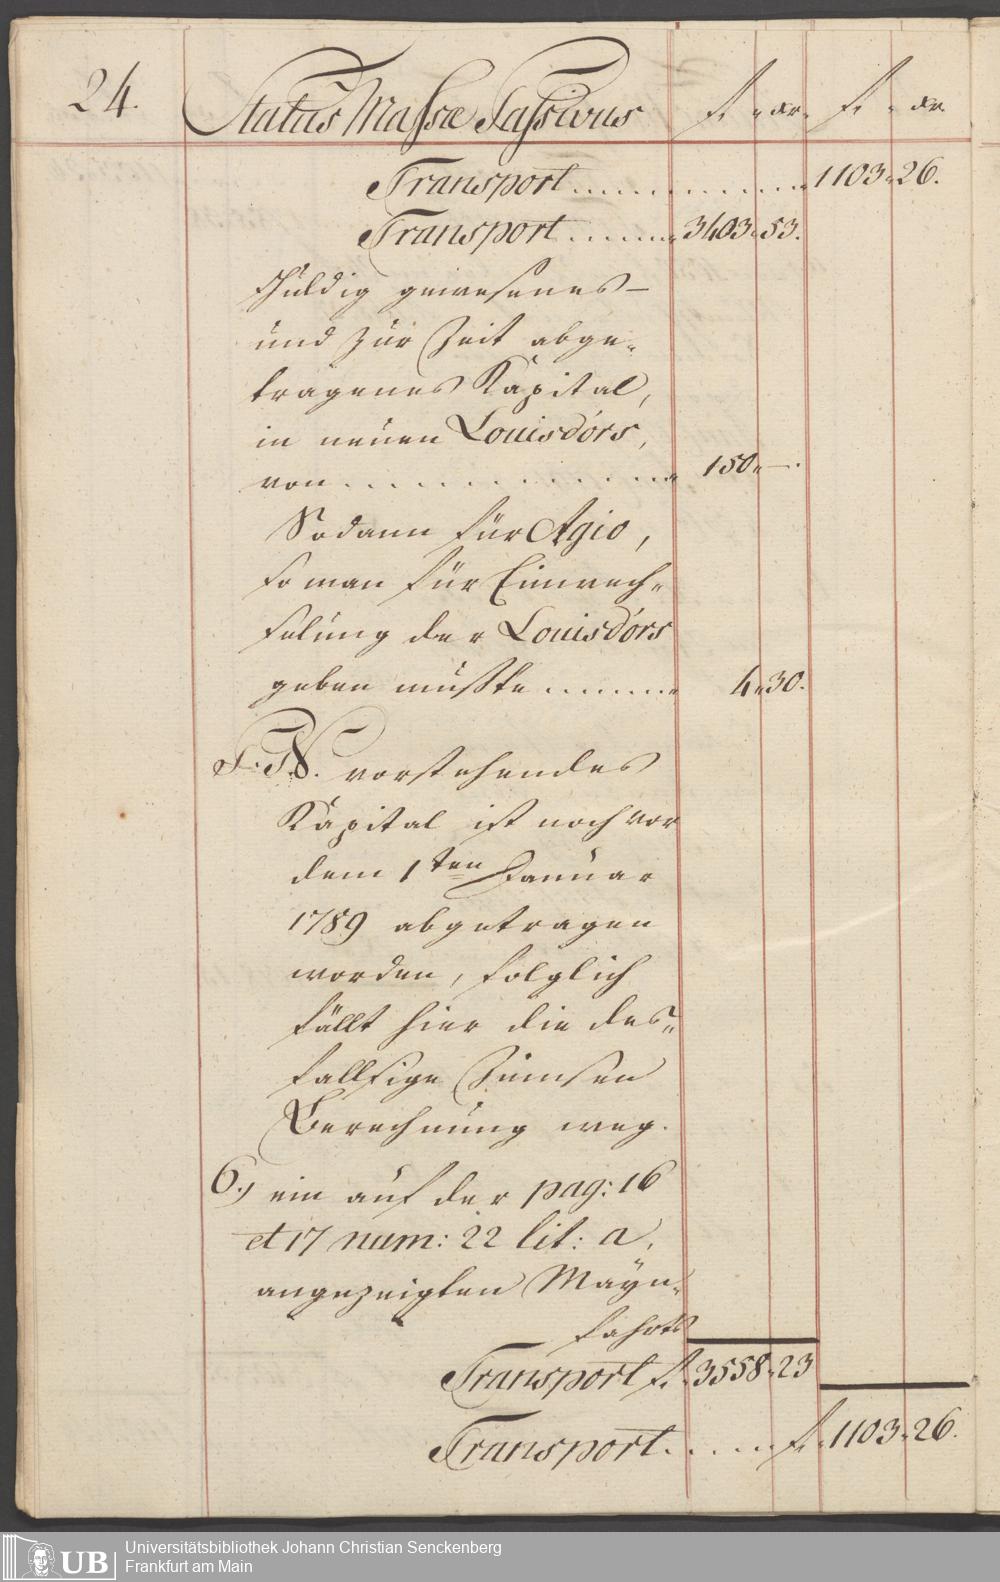 24.
Status Massæ Passivus f. xr. f. xr.
Transport 1103. 26.
Transport 3403. 53.
schuldig gewesenes
und zur Zeit abge-
tragenes Kapital,
in neuen Louisd'ors,
von 150. —.
Sodann für Agio,
so man für Einwech-
selung der Louisd'ors
geben musste 4. 30.
vorstehendes
Kapital ist noch vor
dem 1ten Januar
1789 abgetragen
worden, folglich
fällt hier die des-
fallsige Zinnsen
Berechnung weg.
6.) ein auf der pag: 16
et 17 num: 22 lit: a,
angezeigten Mayn-
fahrts
Transport f. 3558. 23
Transport f. 1103. 26.
UB Universitätsbibliothek Johann Christian Senckenberg
Frankfurt am Main